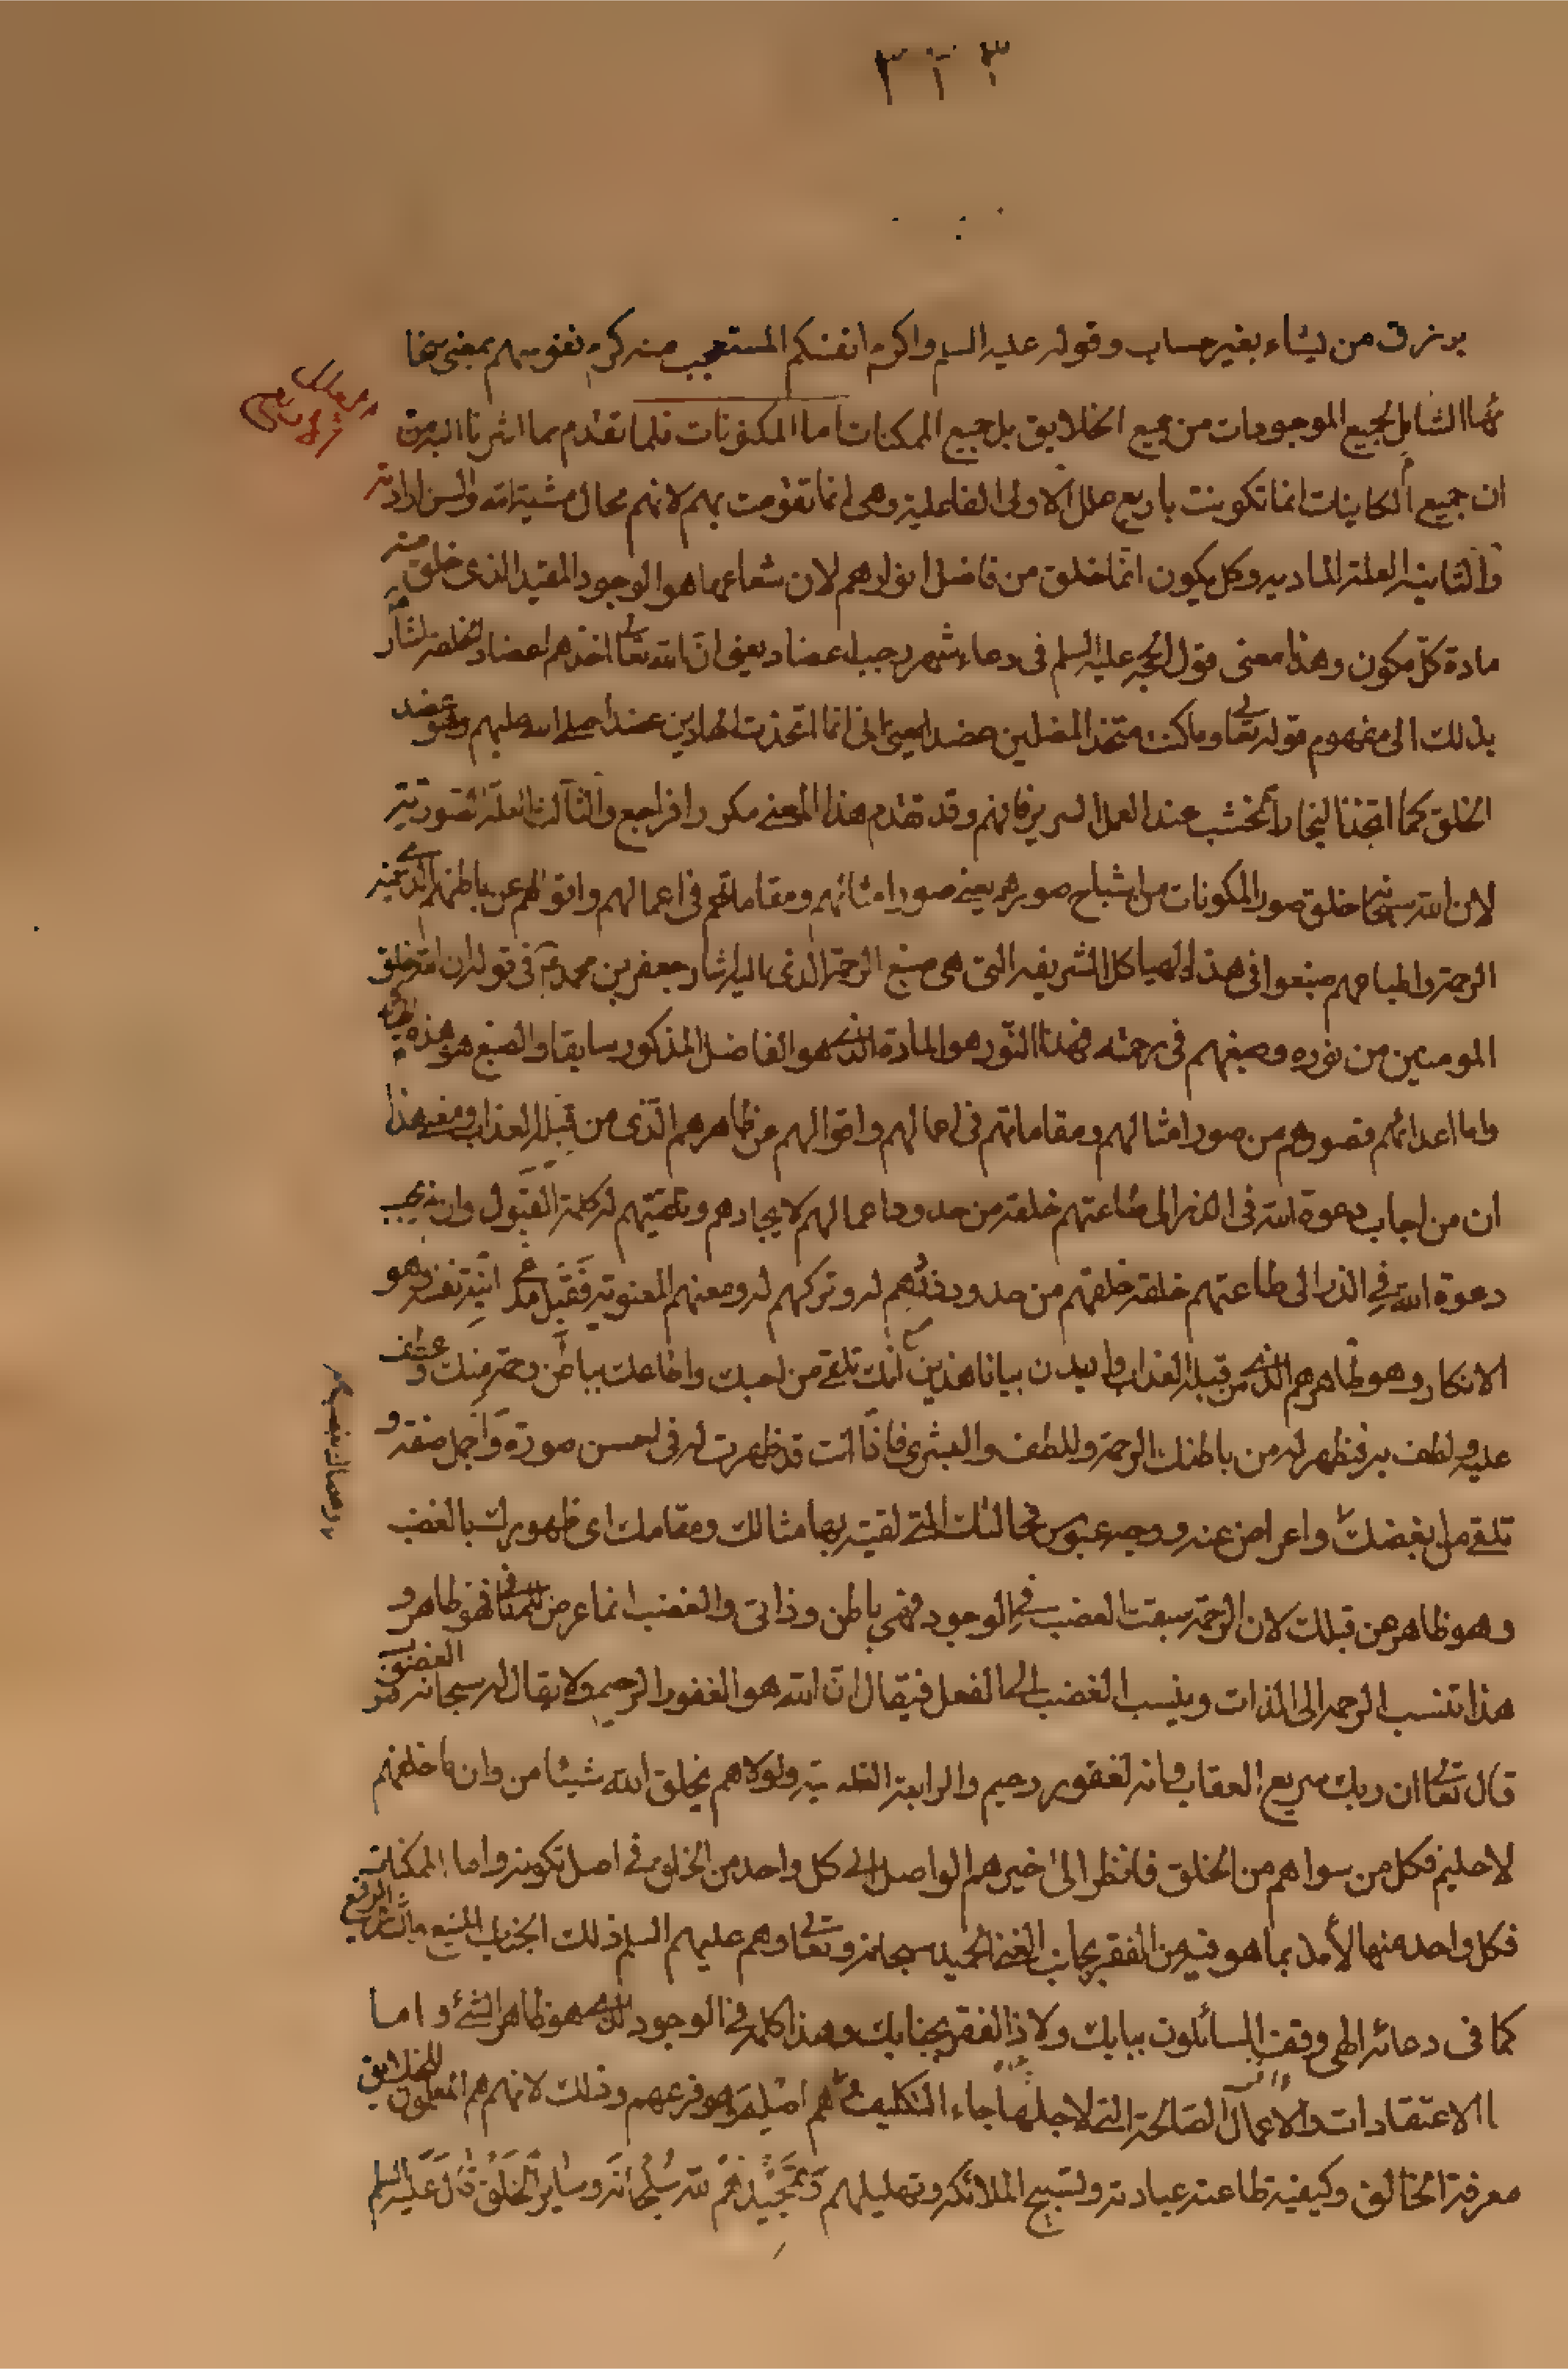 ٣٢٣
يرزق من يشاء بغير حساب وقوله عليه السلم واكرم انفسكم المستعجب منه كرم نفوسهم بمعنى سخا
ئها الشامل لجميع الموجودات من جميع الخلايق بل جميع الممكنات اما المكونات فلما تقدم مما اشرنا اليه من
ان جميع الكاينات انما تكونت باربع علل الاولى الفاعلية وهى انما تقومت بهم لانهم محال مشية الله والسن ارادته
والثانية العلة المادية وكل مكون انما خلق من فاضل انوارهم لان شعاعها هو الوجود المقيد الذى خلق منه
مادة كل مكون وهذا معنى قول الحجة عليه السلم فى دعاء شهر رجب اعضاد يعنى ان الله تعالى اتخذهم اعضادا لخلقه اشار
بذلك الى مفهوم قوله تعالى وما كنت متخذ المضلين عضدا يعنى انى انما اتخذت الهادين عضدا صلى الله عليهم وهو عضد
الخلق كما اتخذ النجار الخشب عضدا لعمل السرير فافهم وقد تقدم هذا المعنى مكررا فراجع والثالثة العلة الصورية
لان الله سبحانه خلق صور المكونات من اشباح صورهم يعنى صور امثالهم ومقاماتهم فى اعمالهم واقوالهم عن باطنهم الذى فيه
الرحمة واطباعهم صبغوا فى هذه الهياكل الشريفة التى هى صبغ الرحمة الذى اليه اشار جعفر بن محمد ع فى قوله ان الله خلق
المومنين من نوره وصبغهم فى رحمته فهذا النور هو المادة الذى هو الفاضل المذكور سابقا والصبغ هو هذه
واما اعدائهم فصورهم من صور امثالهم ومقاماتهم فى اعمالهم واقوالهم من ظاهرهم الذى من قبله العذاب ومعنى هذا
ان من اجاب دعوة الله فى الذر الى طاعتهم خلقه من حدود اعمالهم لايجادهم وتلقيهم له كلمة القبول وان من يجب
دعوة الله فى الذر الى طاعتهم خلقة خلقهم من حدود ذبهم له وتركهم له ومعنهم المعنوية فقبل انية نفسه وهو
الانكار وهو ظاهرهم الذى من قبله العذاب وازيدن بيانا هذين انك تلقى من احبك واطاعك بباطن رحمة منك وعطف
عليه ولطف به فيظهر له من باطنك الرحمة واللطف والبشرى فاذا انت قد ظهرت له فى احسن صورة واجمل صفة و
تلقى من ابغضك واعراض عنه ووجه عبوس فحالتك التى لقيته بها مثالك ومقامك اى ظهورك بالغضب
وهو ظاهر من قبلك لان الرحمة سبقت الغضب فى الوجود فهى باطن وذاتى والغضب انما عرض فهو ظاهر و
هذا تنسب الرحمة الى الذات وينسب الغضب الى الفعل فيقال ان الله هو الغفور الرحيم ولا يقال له سبحانه هو الغضوب
قال تعالى ان ربك سريع العقاب وانه لغفور رحيم والرابعة الغائية ولولاهم لم يخلق الله شيئا من وان ما خلقهم
لاجلهم فكل من سواهم من الخلق فانظر الى خيرهم الواصل الى كل واحد من الخلق فى اصل تكوينه واما الممكنات
فكل واحد منها لاذ بما هو فيه من الفقر بجانب الغنى الحميد سبحانه وتعالى وهم عليهم السلم ذلك الجناب المنيع والشان الرفيع
كما فى دعائه الهى وقف السائلون ببابك ولاذ الفقراء بجنابك وهذا كله فى الوجود الذى هو ظاهر الشئ واما
الاعتقادات والاعمال الصالحة التى لاجلها جاء التكليف فهم اصله وهو فرعهم وذلك لانهم هم المعلمون للخلائق
معرفة الخالق وكيفية طاعته عبادته وتسبيح الملائكة وتهليلهم وتمجيدهم لله سبحانه وساير الخلق قال عليه السلم